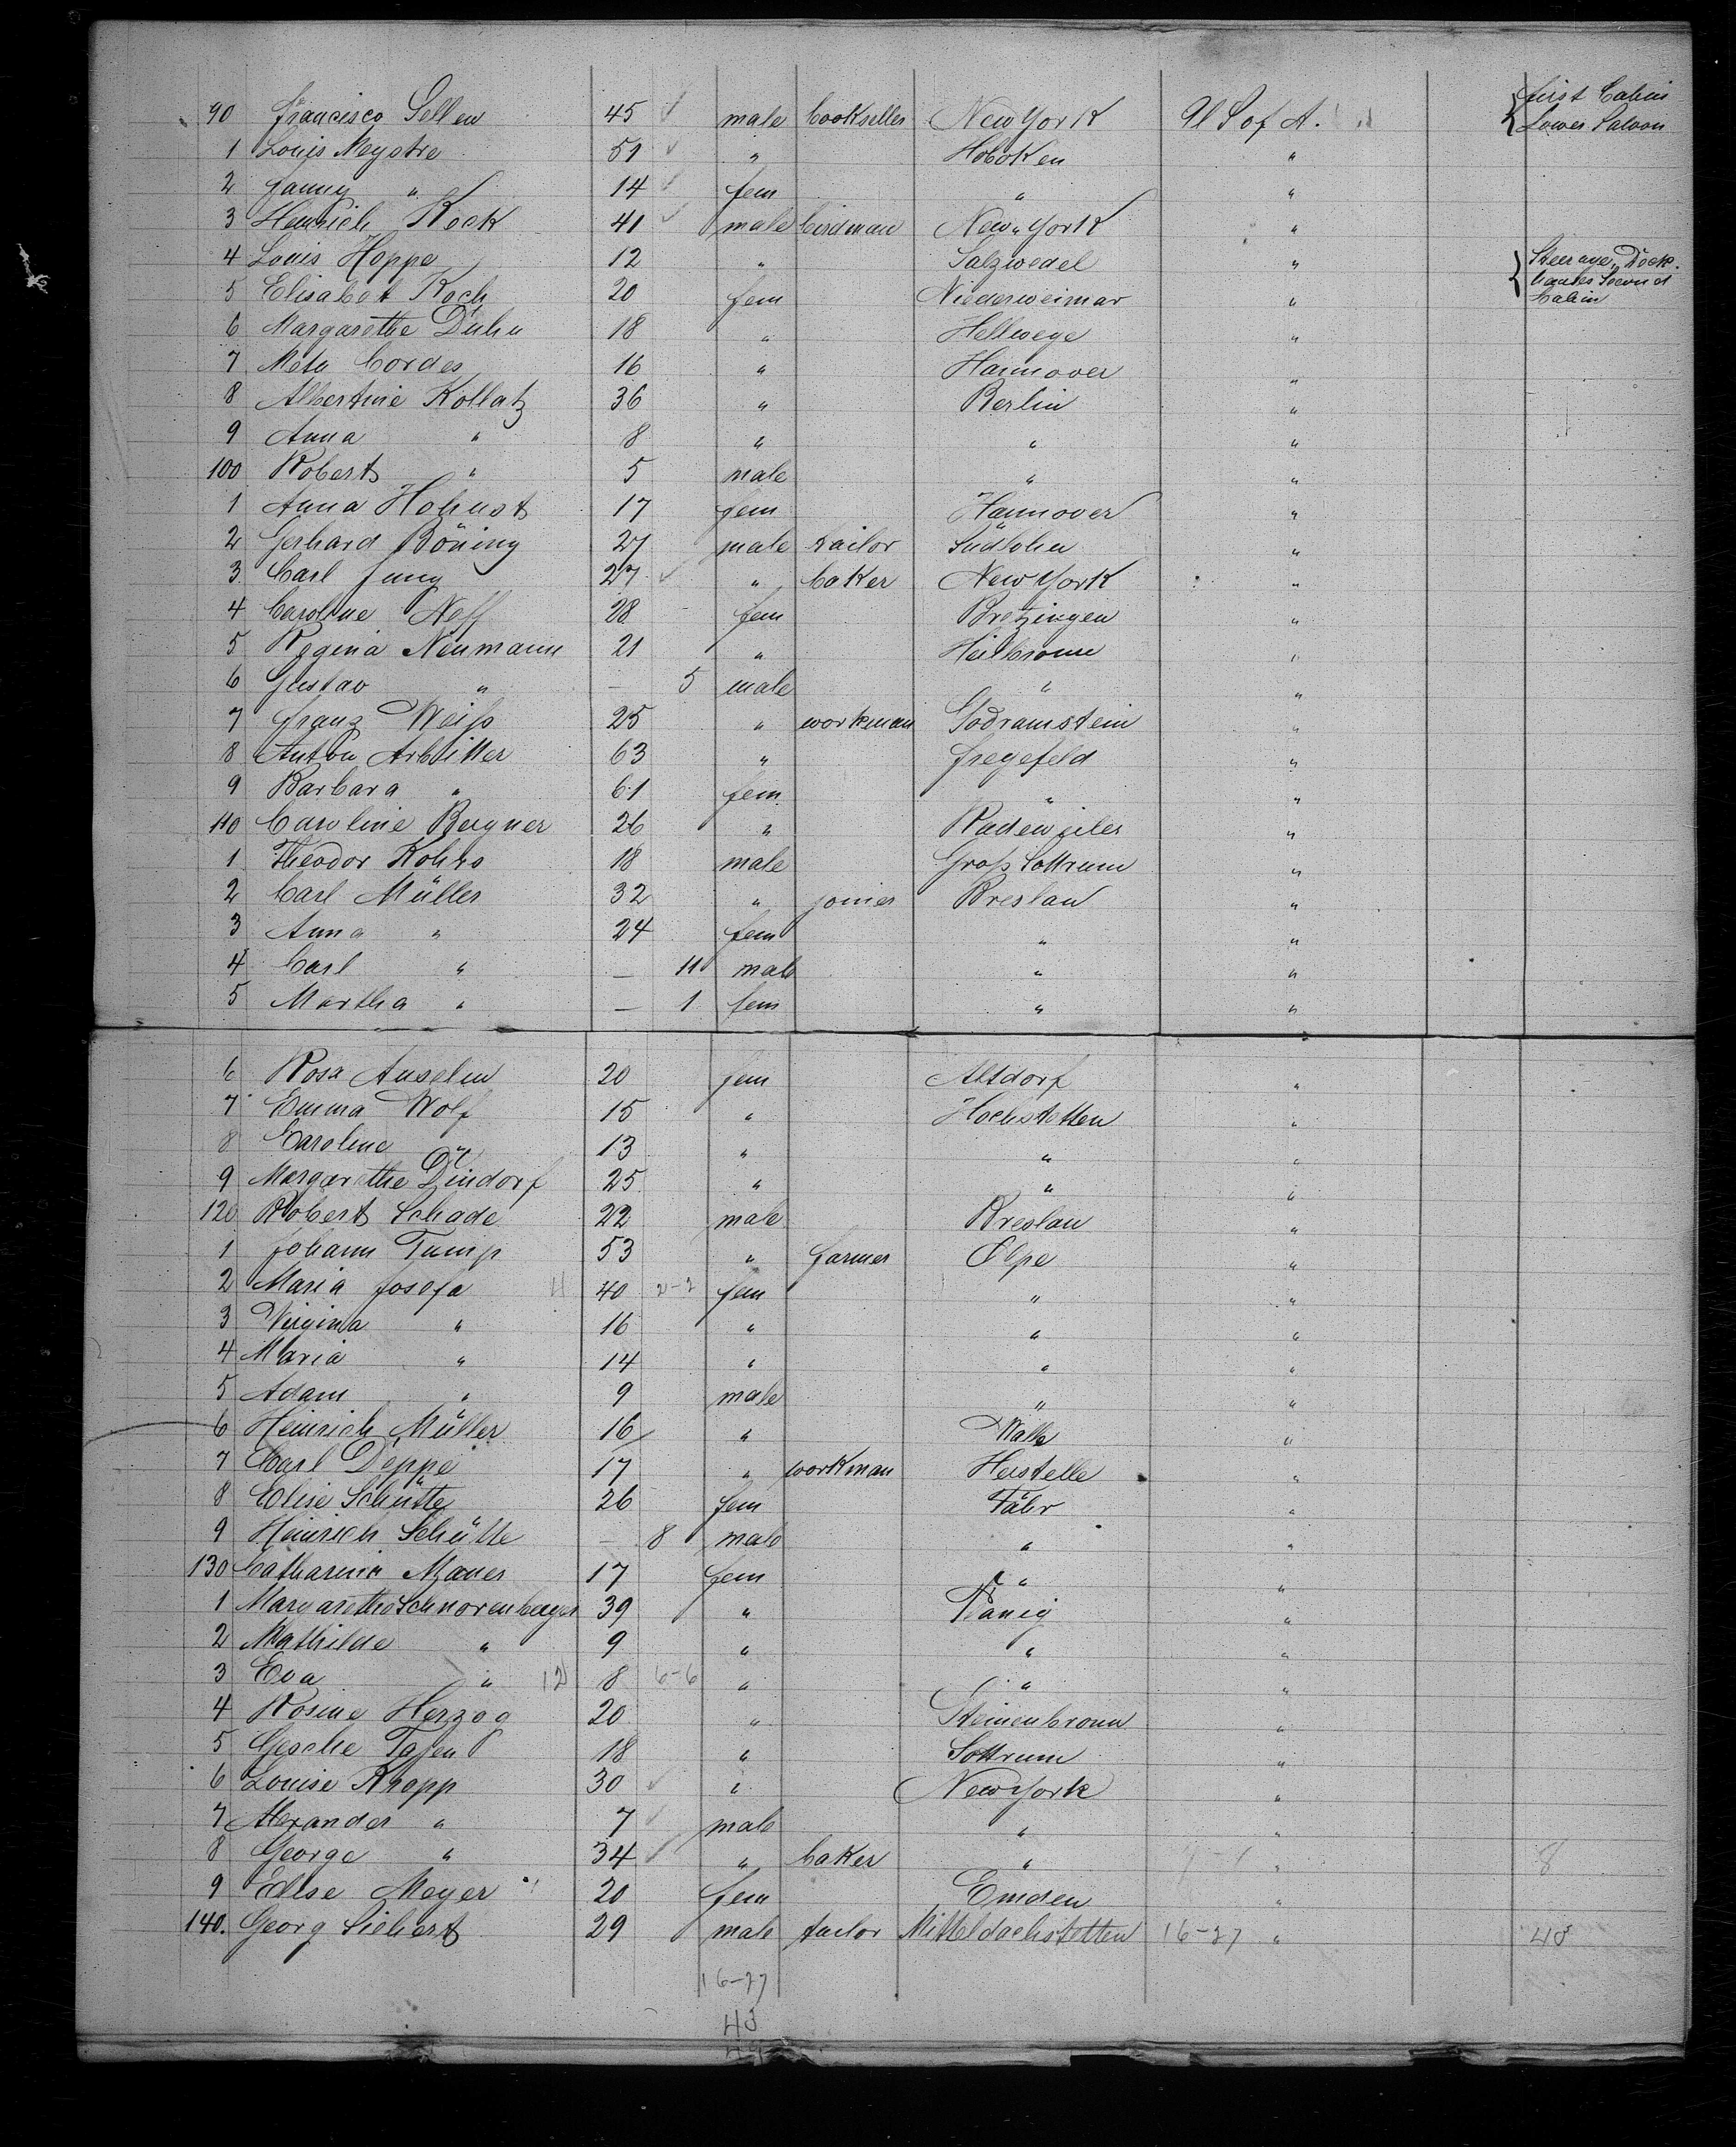 90 Francisco Sellen 45 ✓ male bookseller New York U S of A. { first Cabin
Lower Saloon
1 Louis Meystre 51 ✓ " Hoboken "
2 Fanny " 14 ✓ fem " "
3 Heinrich Kock 41 ✓ male birdman New York "
4 Louis Hoppe 12 " Salzwedel " { Steerage, Deck.
5 Elisabet Koch 20 fem Niederweimar " Second
Cabin
6 Margarethe Duhn 18 " Hellwege "
7 Meta Cordes 16 " Hannover "
8 Albertine Kollatz 36 " Berlin "
9 Anna " 8 " " "
100 Robert " 5 male " "
1 Anna Hohnst 17 fem Hannover "
2 Gerhard Böning 27 male sailor Südlohn "
3 Carl Jung 27 ✓ " baker New York "
4 Caroline Neff 28 fem Bretzingen "
5 Regina Neumann 21 " Heilbronn "
6 Gustav " — 5 male " "
7 Franz Weiß 25 " workman Godramstein "
8 Anton Arbitter 63 " Fregefeld "
9 Barbara " 61 fem " "
110 Caroline Bergner 26 " "
1 Theodor Kohrs 18 male Groß Sottrum "
2 Carl Müller 32 " joiner Breslau "
3 Anna " 24 fem " "
4 Carl " — 11 male " "
5 Martha " — 1 fem " "
6 Rosa Anselm 20 fem Altdorf "
7 Emma Wolf 15 " Hochstetten "
8 Caroline 13 " " "
9 Margarethe Dindorf 25 " " "
120 Robert Schade 22 male Breslau "
1 Johann Tump 53 " farmer Olpe "
2 Maria Josefa 4 40 2-2 fem " "
3 Virginia " 16 " " "
4 Maria " 14 " " "
5 Adam " 9 male " "
6 Heinrich Müller 16 " Walle "
7 Carl Deppe 17 " workman Herstelle "
8 Elise Schütte 26 fem Fähr "
9 Heinrich Schütte — 8 male " "
130 Catharina Maner 17 fem " "
1 Margarethe Schnorenberger 39 " Planig "
2 Mathilde " 9 " " "
3 Eva " 12 8 6-6 " " "
4 Rosine Herzog 20 " Steinenbronn "
5 Gesche Tafen 18 " Sottrum "
6 Louise Kropp 30 ✓ " New York "
7 Alexander " 7 ✓ male " "
8 George " 34 ✓ " baker " " 8
9 Elise Meyer 20 fem Emden "
140. Georg Siebert 29 male tailor Mitteldachstetten 16-27 " 43
16-27
43